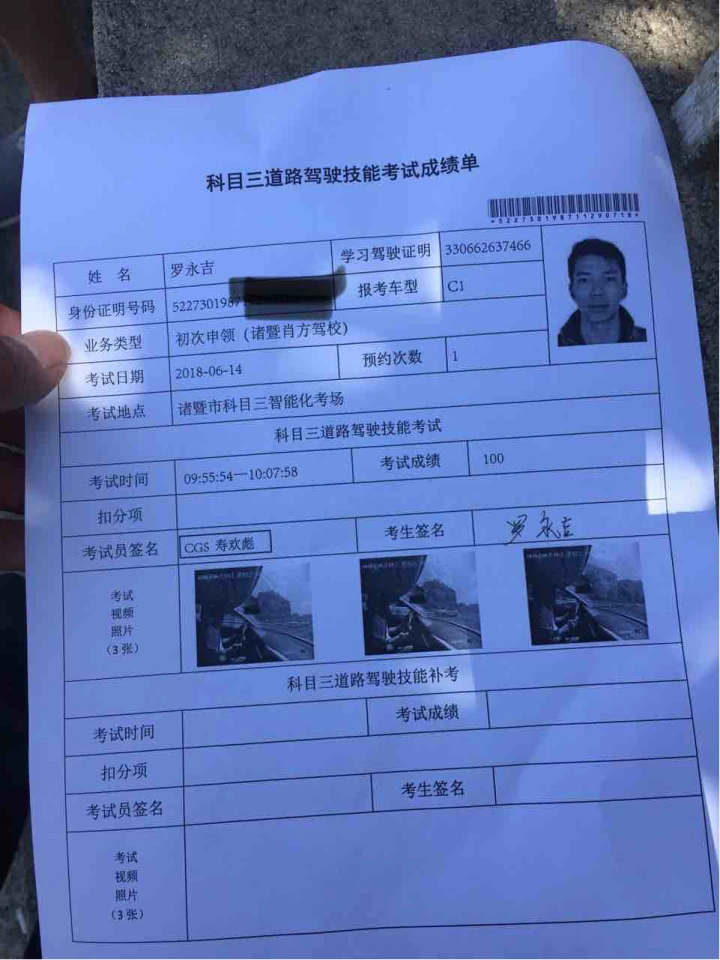 科目三道路驾驶技能考试成绩单
姓 名 罗永吉 学习驾驶证明 330662637466
身份证明号码 5227301987 报考车型 C1
业务类型 初次申领（诸暨肖方驾校）
考试日期 2018-06-14 预约次数 1
考试地点 诸暨市科目三智能化考场
科目三道路驾驶技能考试
考试时间 09:55:54—10:07:58 考试成绩 100
扣分项
考试员签名 CGS 寿欢彪 考生签名 罗永吉
考试
视频
照片
（3张）
科目三道路驾驶技能补考
考试时间 考试成绩
扣分项
考试员签名 考生签名
考试
视频
照片
（3张）